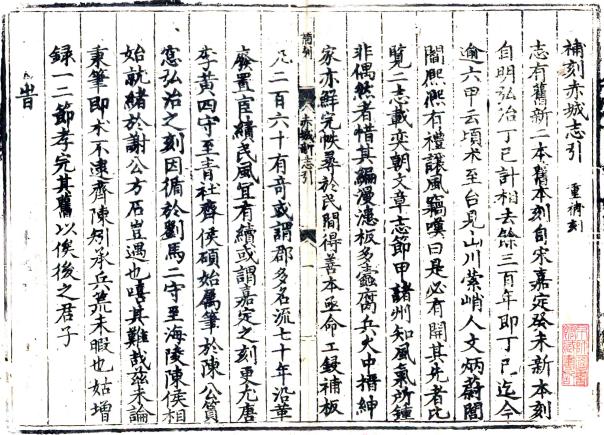 補刻赤城志引 重補刻
志有舊新二本舊本刻自宋嘉定癸未新本刻
自明弘治丁巳計相去餘三百年即丁巳迄今
逾六甲云頃來至台見山川縈峭人文炳蔚閭
閻熈熈有禮讓風竊嘆曰是必有開其先者比
覽二志載奕朝文章志節甲諸州知風氣所鍾
非偶然者惜其編漫漶板多蠹腐兵火中搢紳
家亦鮮完帙尋於民間得善本亟命工鋟補板
赤城新志引
一
凡二百六十有奇或謂郡多名流七十年沿革
廢置宦績民風宜有續或謂嘉定之刻更亢唐
李黄四守至青社齊侯碩始屬筆於陳公篔
窓弘治之刻因循於劉馬二守至海陵陳侯相
始就緒於謝公方石豈遇也嘻其難哉茲未論
秉筆即來不逮齊陳矧承兵荒未暇也姑增
録一二節孝完其舊以俟後之君子
旹